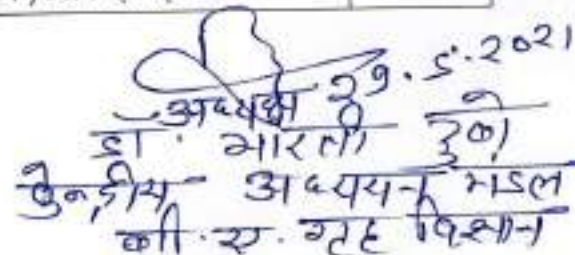 29.5.2021
अध्यक्ष
डॉ. भारती दुबे
केन्द्रीय अध्ययन मंडल
बी.ए. गृह विज्ञान